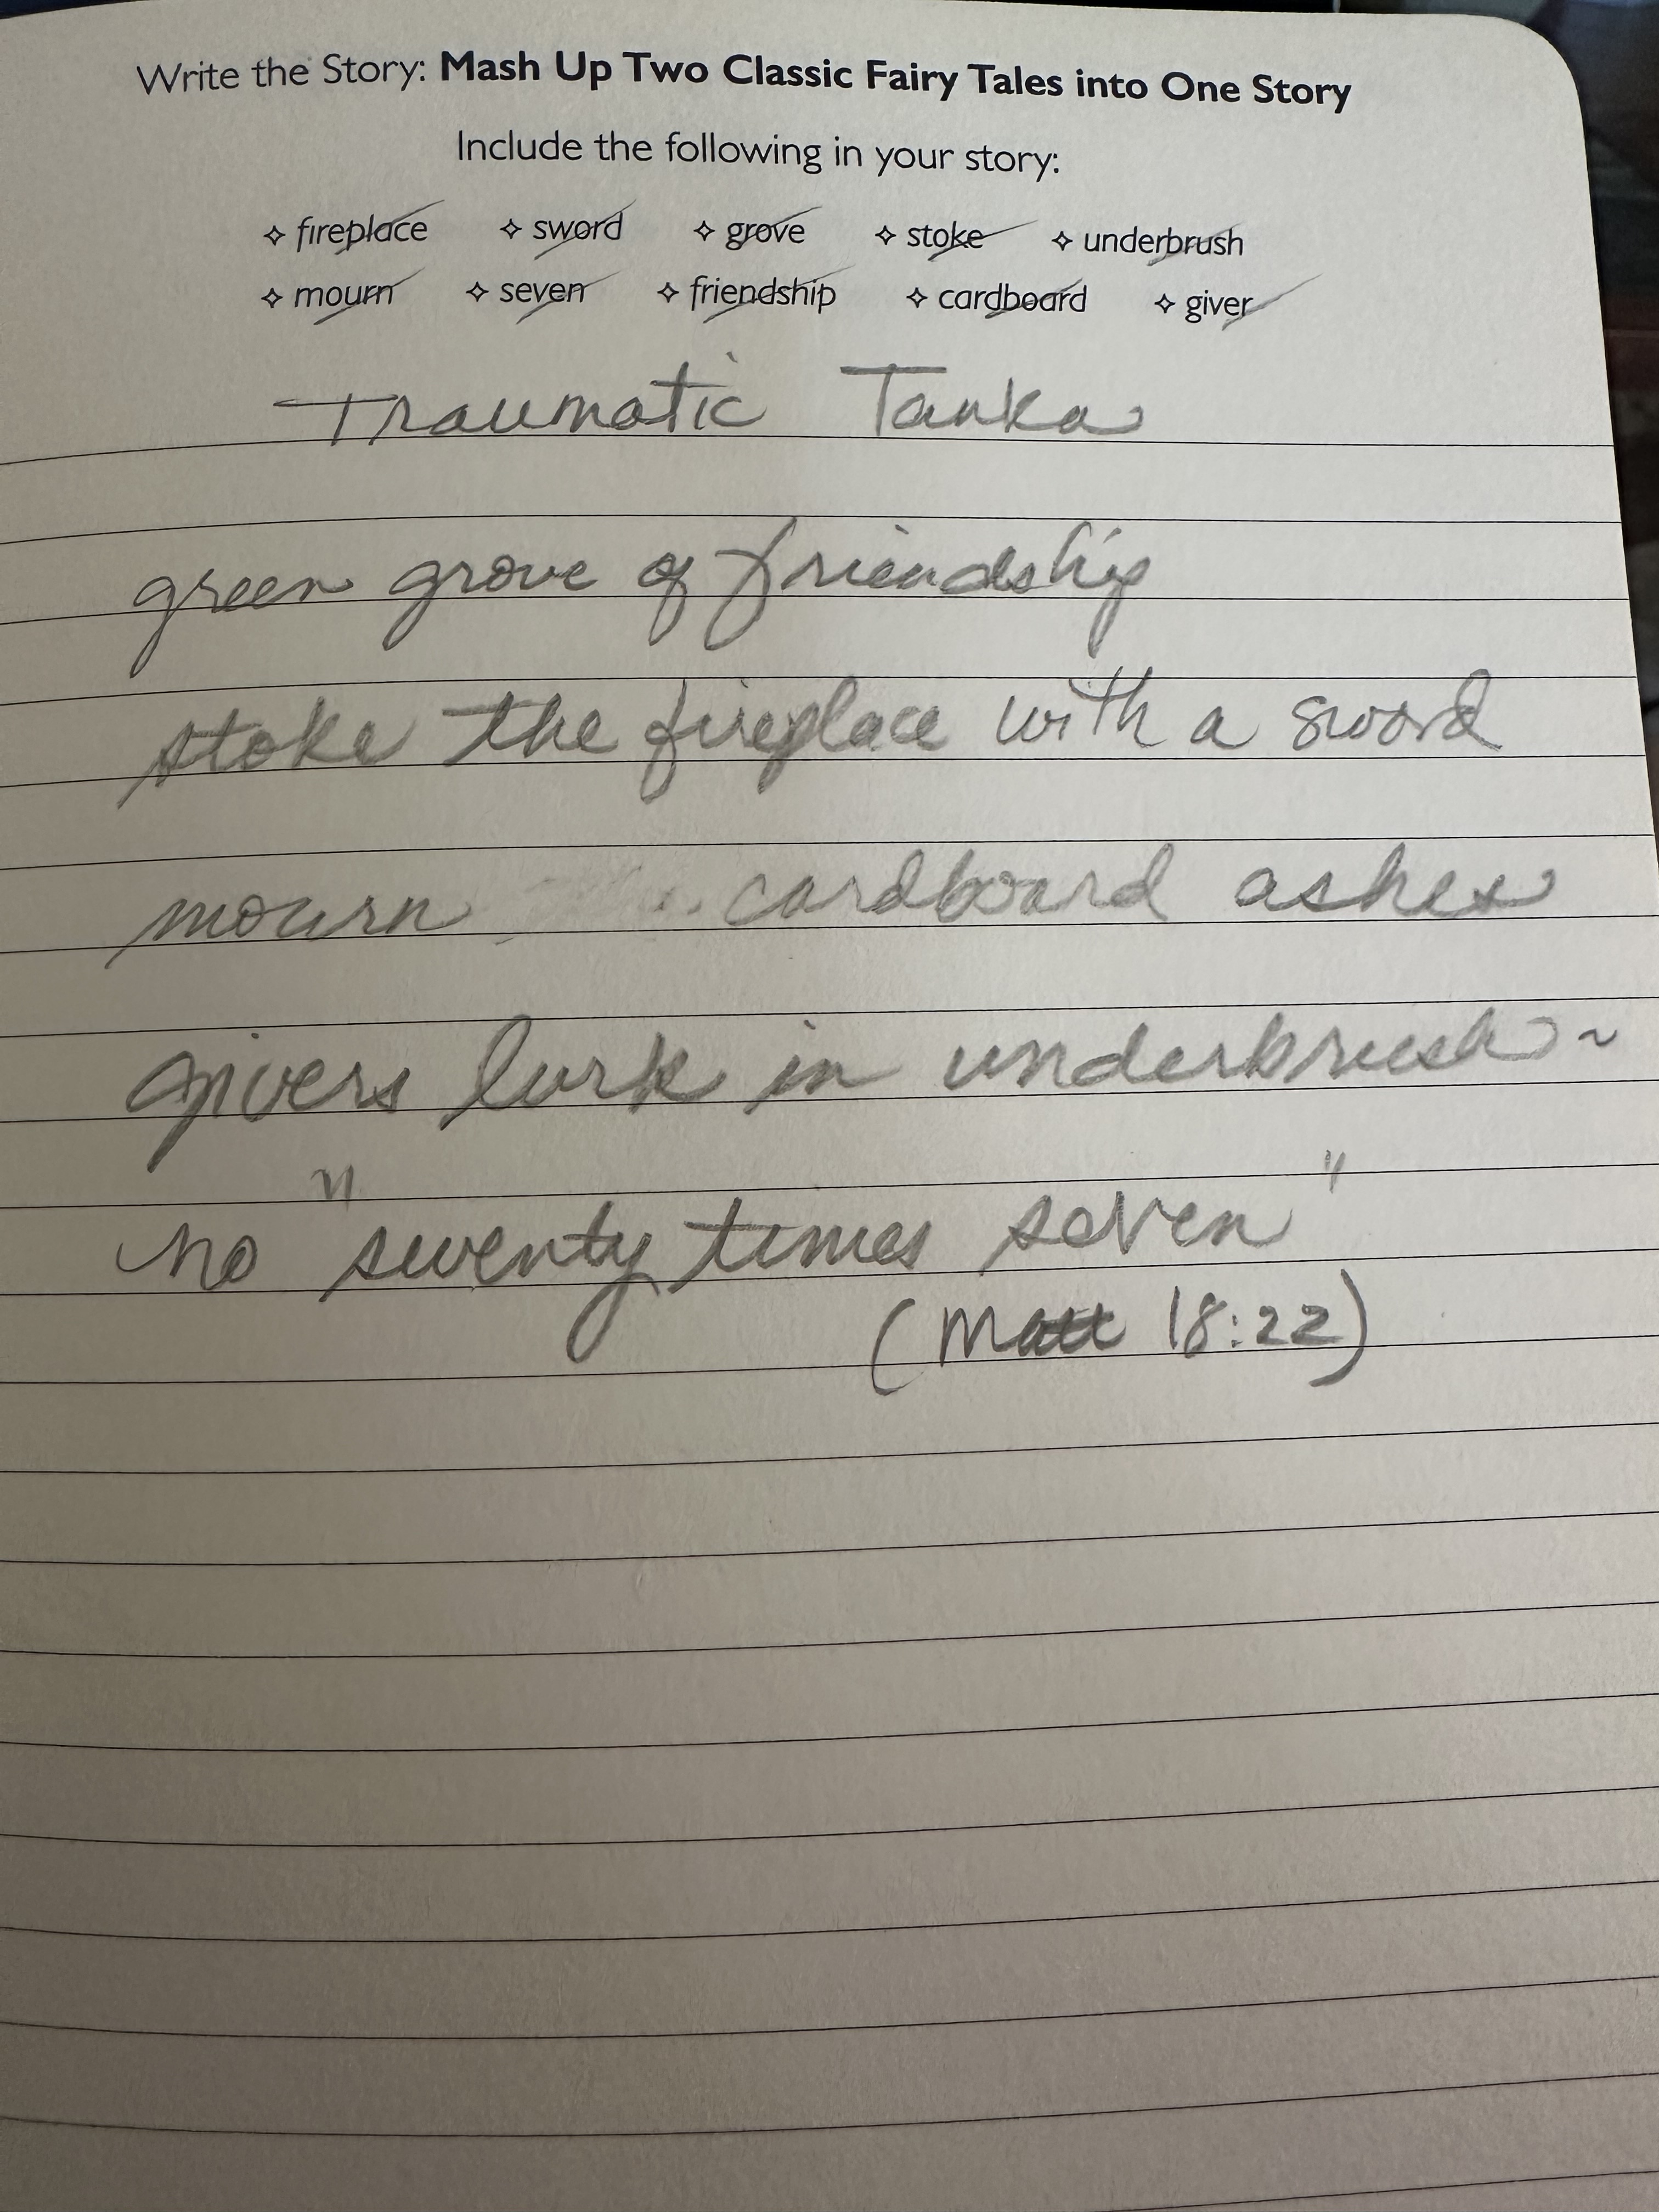 Write the Story: Mash Up Two Classic Fairy Tales into One Story
Include the following in your story:
✧ fireplace ✧ sword ✧ grove ✧ stoke ✧ underbrush
✧ mourn ✧ seven ✧ friendship ✧ cardboard ✧ giver
Traumatic Tanka
green grove of friendship
stoke the fireplace with a sword
mourn cardboard ashes
givers lurk in underbrush ~
no "seventy times seven"
(Matt 18:22)